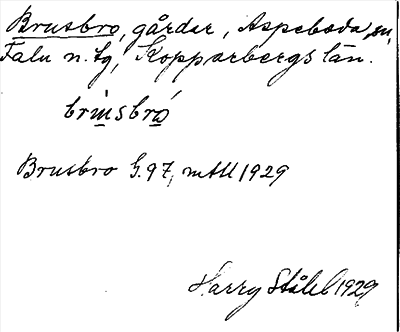 Brusbro, gårdar, Aspeboda sn,
Falu n. tg, Kopparbergs län.
Brusbro G.97, mtll 1929
Harry Ståhl 1929